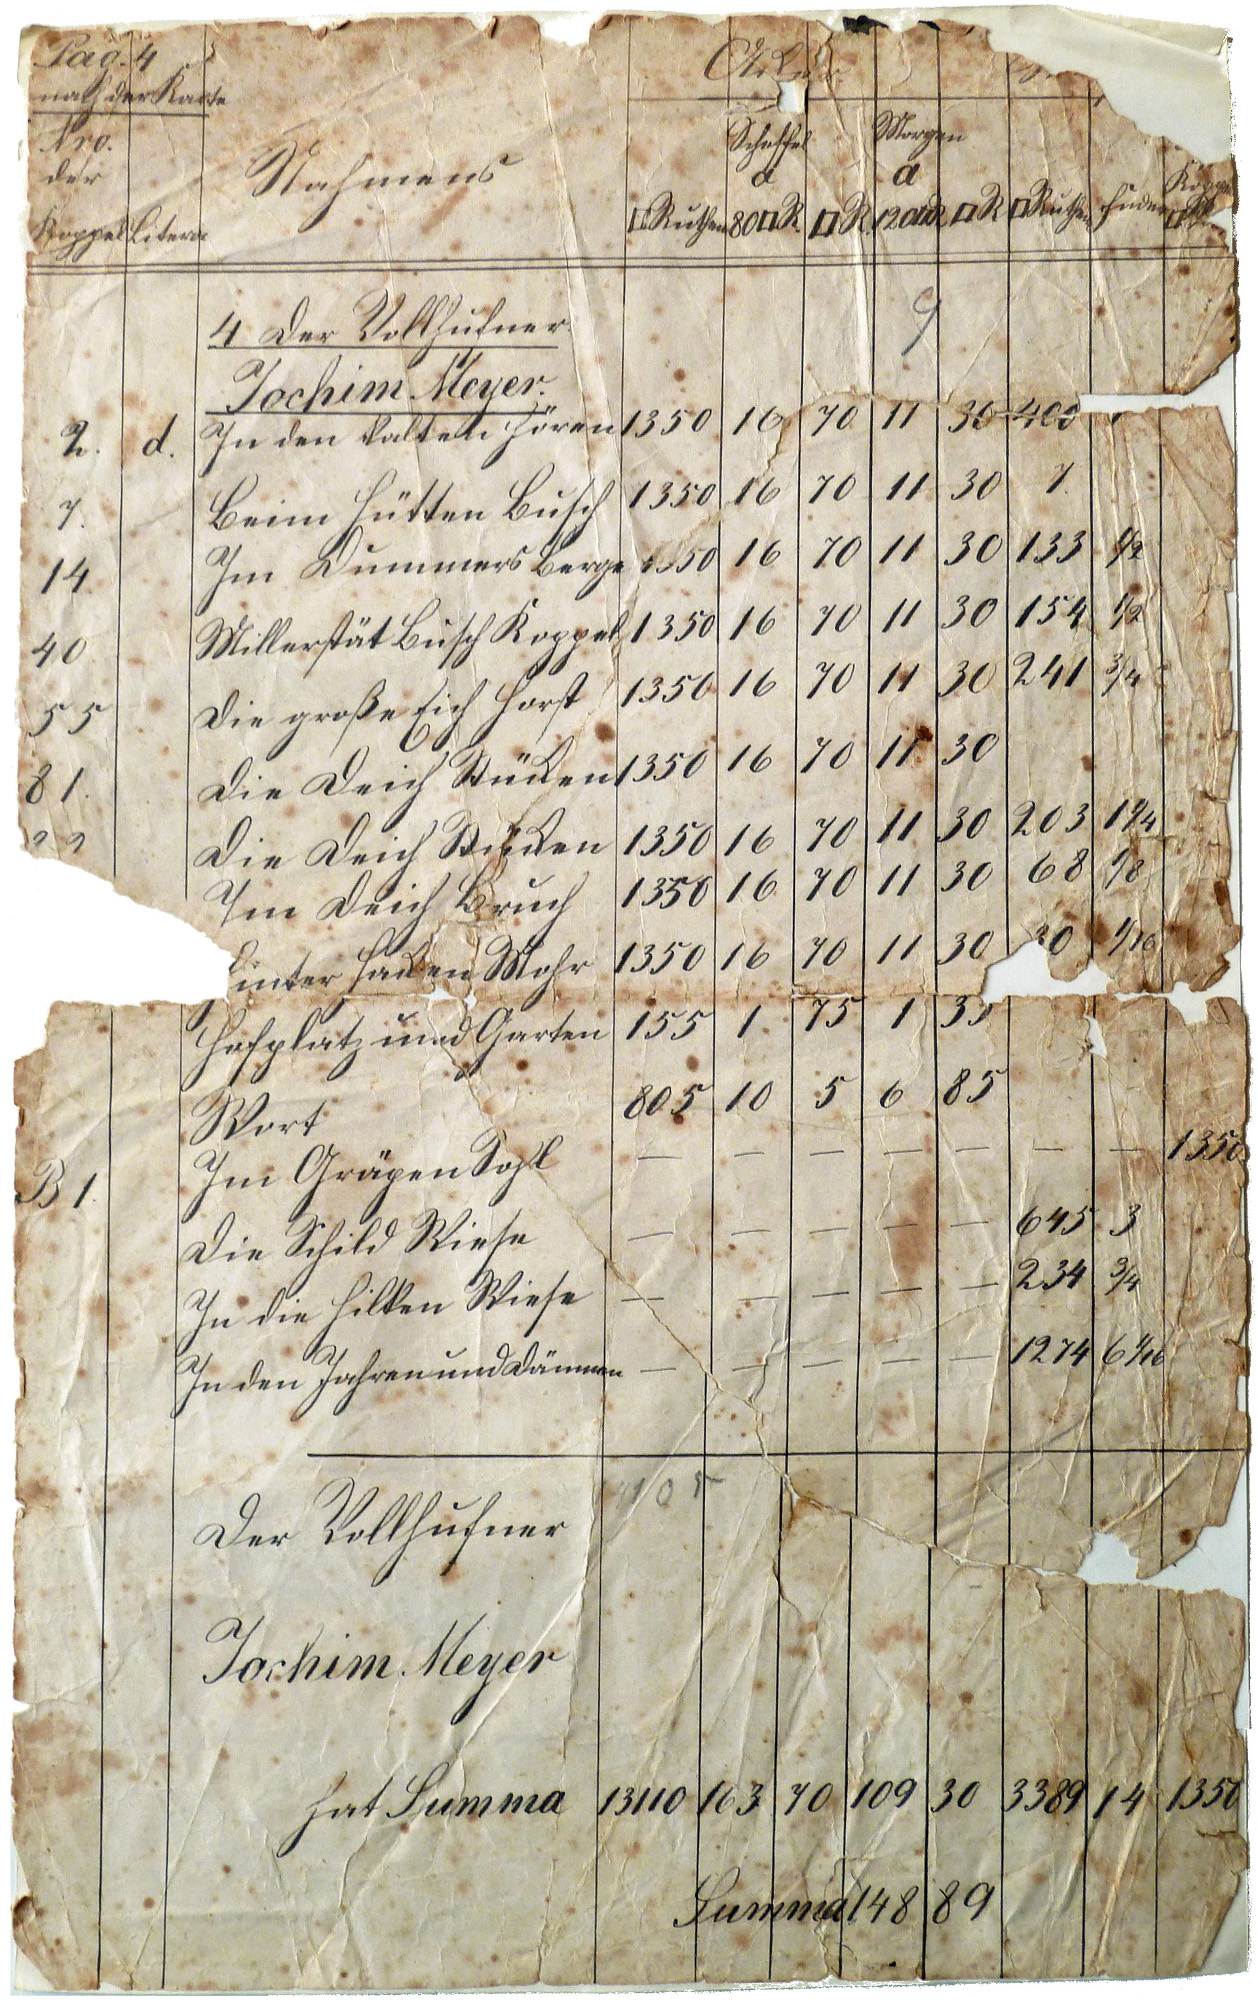 Pag. 4
nach der Karte
Nro. der Koppel Litera
Nahmens
Acker
□Ruthen Scheffel a 80□R □R. Morgen a 120□R □R □Ruthen Fuder Koppel □R
4 Der Vollhufner
Jochim Meyer.
2. d. In den kalten Hören 1350 16 70 11 30 400
7. Beim Hütten Busch 1350 16 70 11 30 7.
14 Im Dummers Berge 1350 16 70 11 30 133 1/2
40 Millerstät Busch Koppel 1350 16 70 11 30 154 1/2
55 Die große Eich Horst 1350 16 70 11 30 241 3/4
81. Die Deich Stücken 1350 16 70 11 30
Die Deich Stücken 1350 16 70 11 30 203 1 1/4
Im Deich Bruch 1350 16 70 11 30 68 1/8
Hinter Hacken Mohr 1350 16 70 11 30 30 1/16
Hofplatz und Garten 155 1 75 1 35
Wort 805 10 5 6 85
B 1. Im Gräpen Sohl — — — — — — — 1350
Die Schild Wiese — — — — — 645 3
In die Hilken Wiese — — — — — 234 3/4
In den Jahren und Dämmen — — — — — 1274 6 1/16
Der Vollhufner
Jochim Meyer
hat Summa 13110 163 70 109 30 3389 14 1350
Summa 148 89